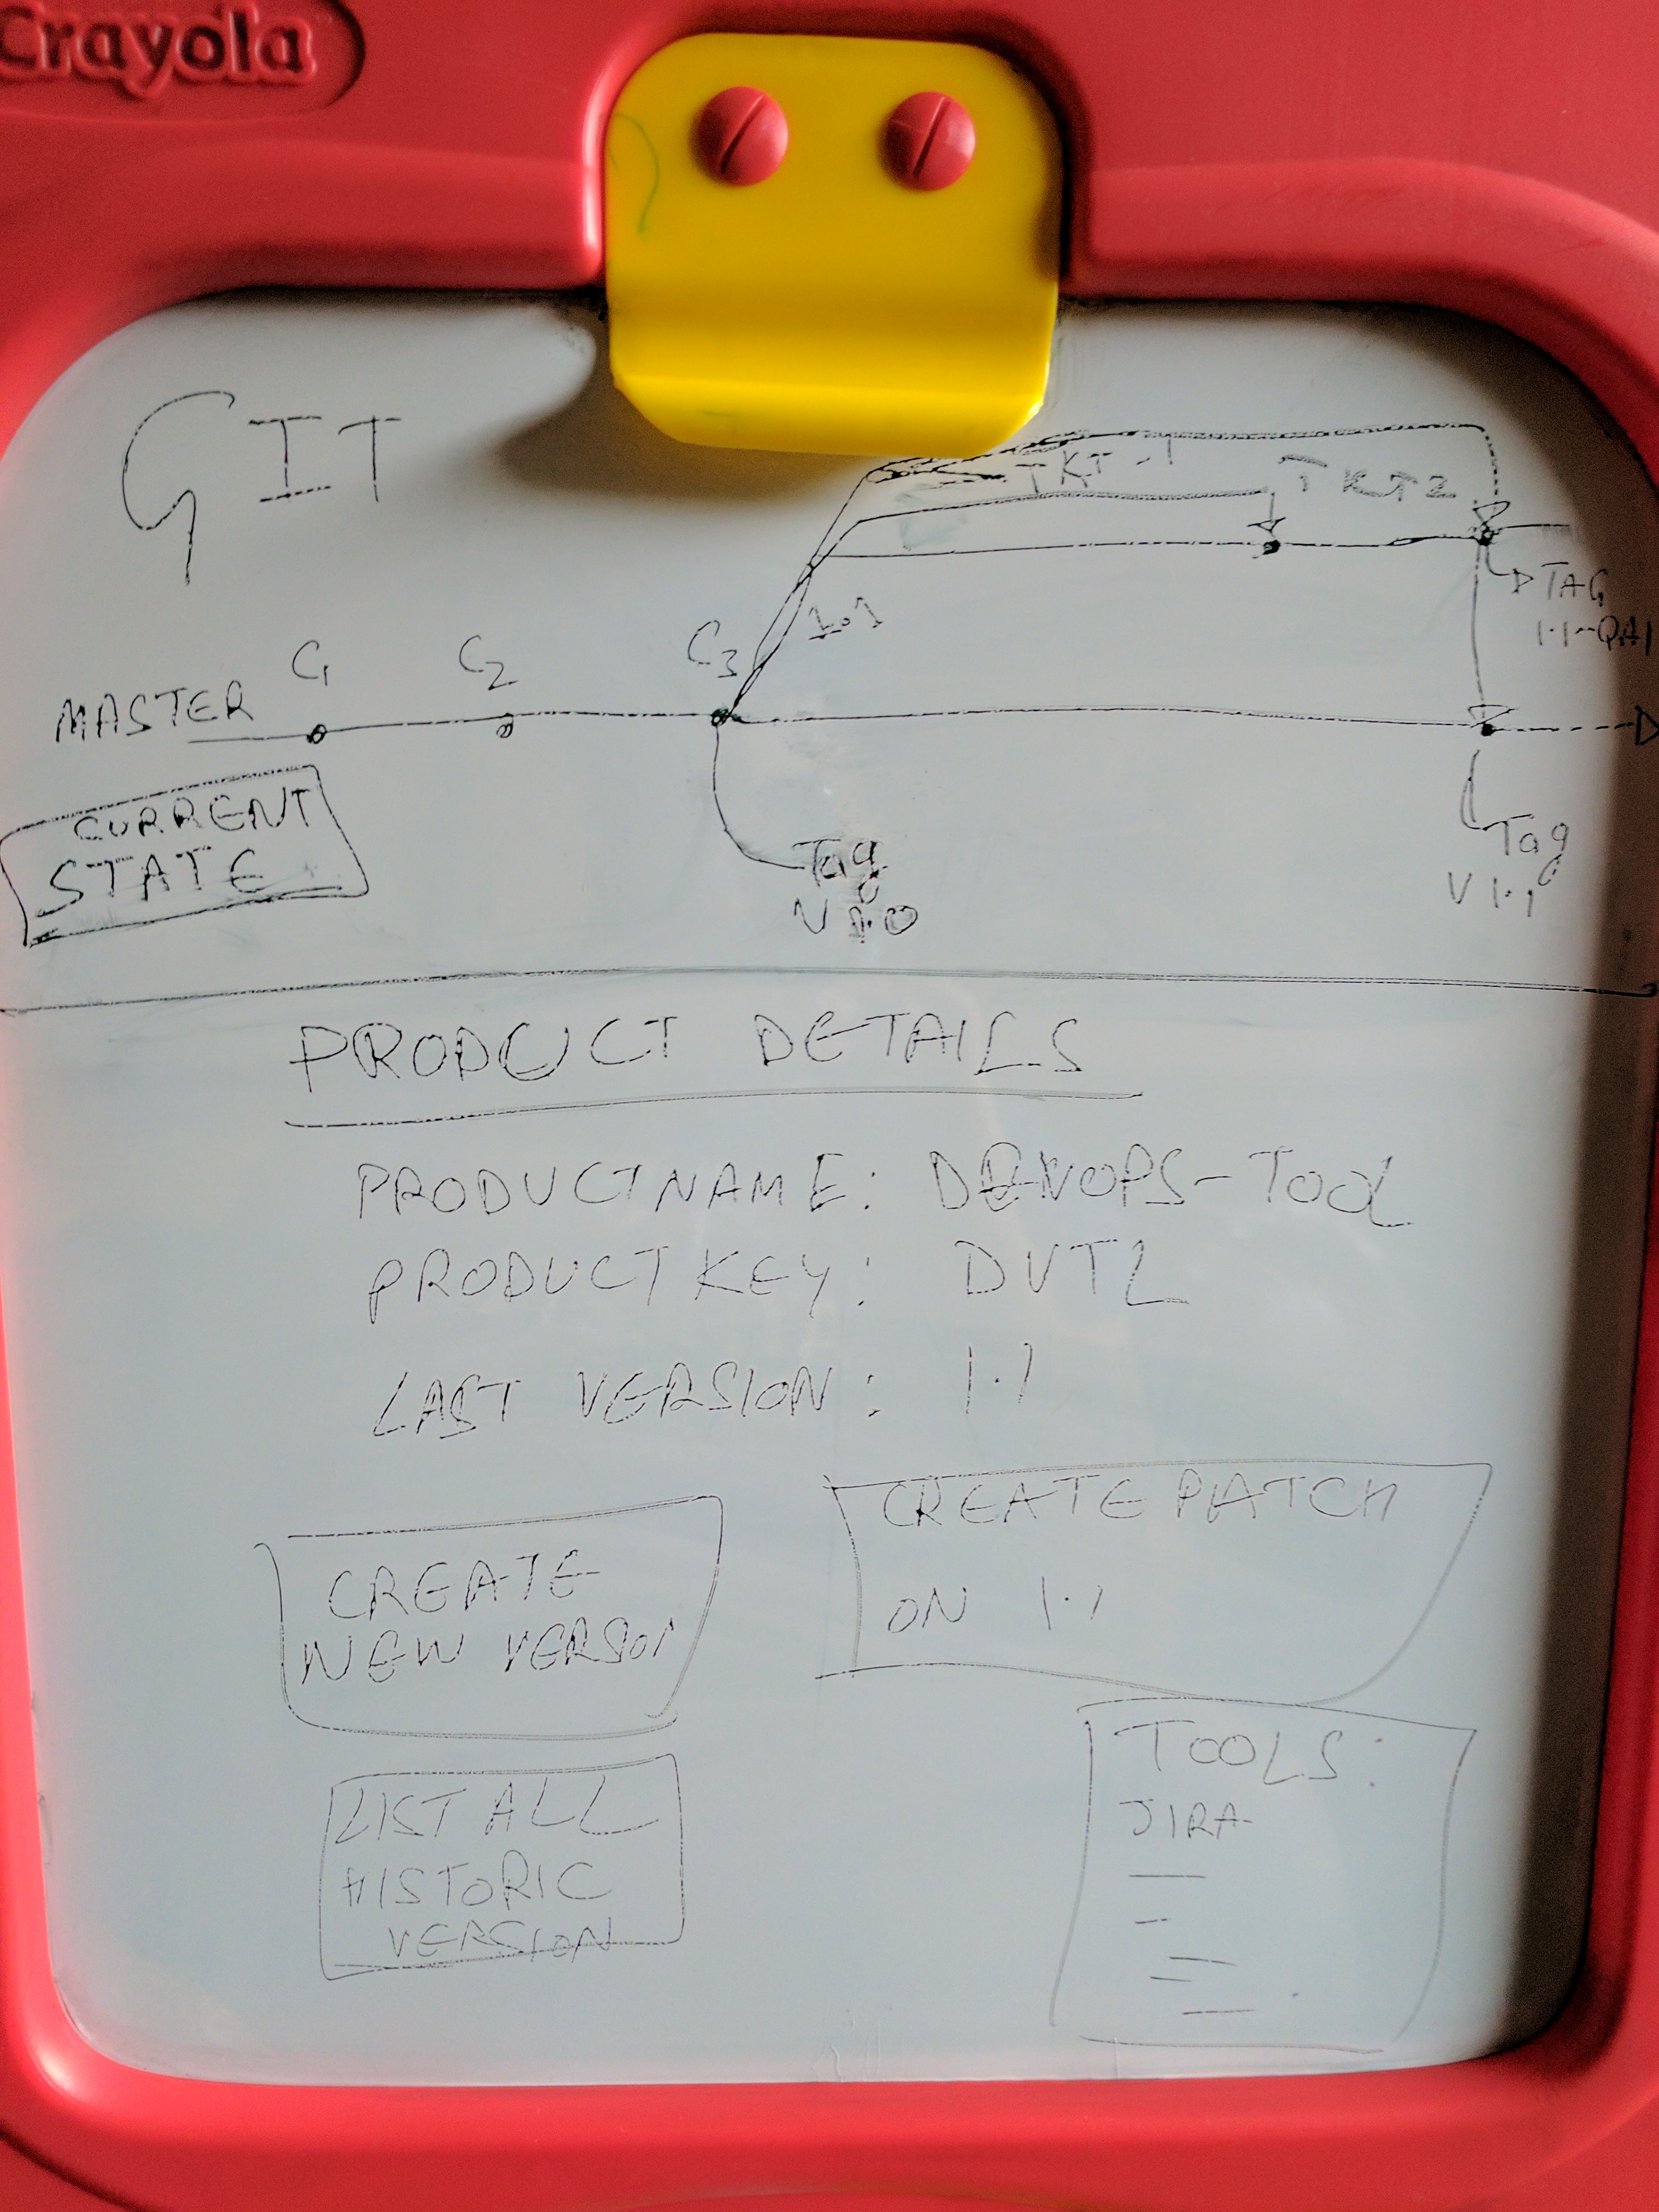 Crayola
GIT
TKT-1
TKT2
TAG
1.1-QA1
1.1
C1
C2
C3
MASTER
CURRENT
STATE
Tag
V 1.0
Tag
V 1.1
PRODUCT DETAILS
PRODUCTNAME: DEVOPS-TOOL
PRODUCT KEY: DVTL
LAST VERSION: 1.1
CREATE PATCH
ON 1.1
CREATE
NEW VERSION
TOOLS:
JIRA
LIST ALL
HISTORIC
VERSION